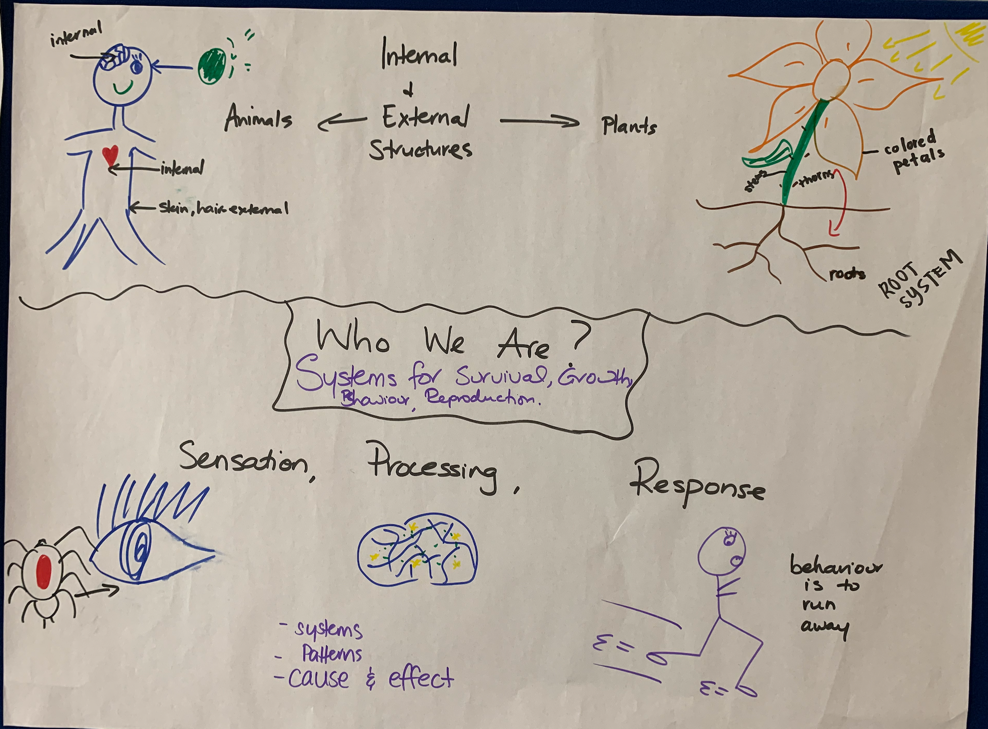 internal
Internal
&
External
Structures
Animals
Plants
internal
skin, hair-external
colored
petals
stem
-thorns
roots
ROOT
SYSTEM
Who We Are?
Systems for Survival, Growth,
Behaviour, Reproduction.
Sensation, Processing, Response
behaviour
is to
run
away
- systems
- Patterns
- cause & effect